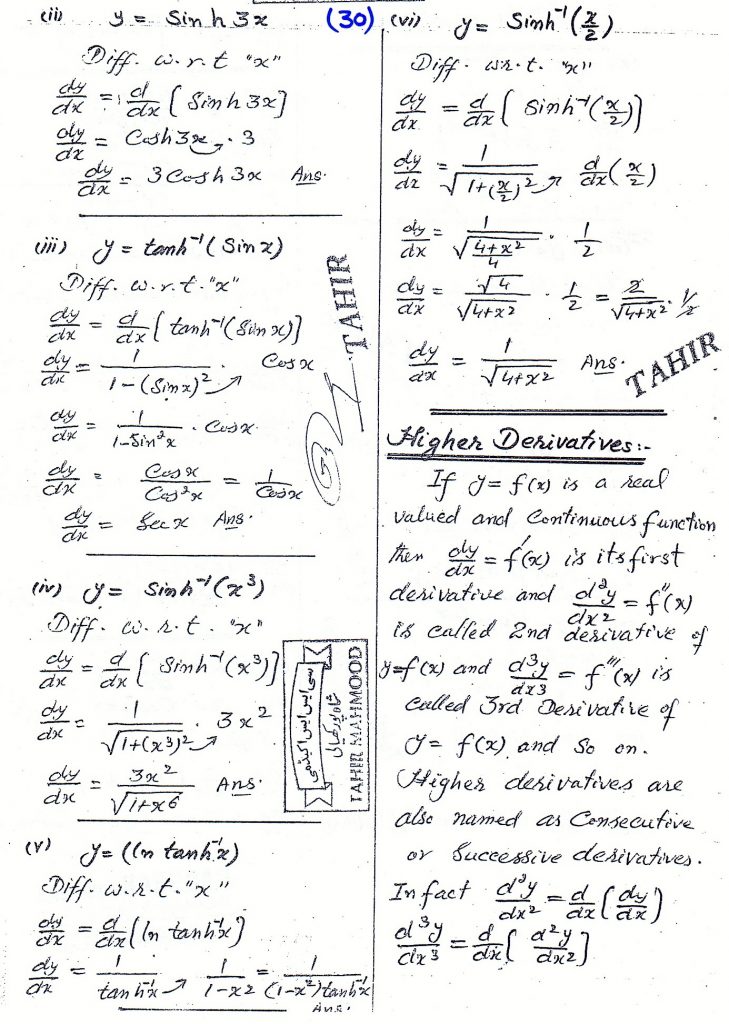 (ii) y = Sinh 3x
Diff. w.r.t "x"
dy/dx = d/dx [Sinh 3x]
dy/dx = Cosh 3x . 3
dy/dx = 3 Cosh 3x Ans.
(iii) y = tanh⁻¹(Sin x)
Diff. w.r.t. "x"
dy/dx = d/dx [tanh⁻¹(Sin x)]
dy/dx = 1/(1-(Sin x)²) . Cos x
dy/dx = 1/(1-Sin²x) . Cos x.
dy/dx = Cos x/Cos²x = 1/Cos x
dy/dx = Sec x Ans.
(iv) y = Sinh⁻¹(x³)
Diff. w.r.t. "x"
dy/dx = d/dx [Sinh⁻¹(x³)]
dy/dx = 1/√(1+(x³)²) . 3x²
dy/dx = 3x²/√(1+x⁶) Ans.
(v) y = (ln tanh⁻¹x)
Diff. w.r.t. "x"
dy/dx = d/dx (ln tanh⁻¹x)
dy/dx = 1/tanh⁻¹x 1/(1-x²) = 1/((1-x²)tanh⁻¹x)
Ans.
TAHIR
سی ایس ایس اکیڈمی
TAHIR MAHMOOD
(30)
(vi) y = Sinh⁻¹(x/2)
Diff. w.r.t. "x"
dy/dx = d/dx [Sinh⁻¹(x/2)]
dy/dx = 1/√(1+(x/2)²) d/dx (x/2)
dy/dx = 1/√((4+x²)/4) . 1/2
dy/dx = √4/√(4+x²) . 1/2 = 2/√(4+x²) . 1/2
dy/dx = 1/√(4+x²) Ans.
TAHIR
Higher Derivatives:-
If y = f(x) is a real
valued and Continuous function
then dy/dx = f'(x) is its first
derivative and d²y/dx² = f''(x)
is called 2nd derivative of
y=f(x) and d³y/dx3 = f'''(x) is
called 3rd Derivative of
y = f(x) and so on.
Higher derivatives are
also named as Consecutive
or Successive derivatives.
In fact d²y/dx² = d/dx (dy/dx)
d³y/dx³ = d/dx [d²y/dx2]